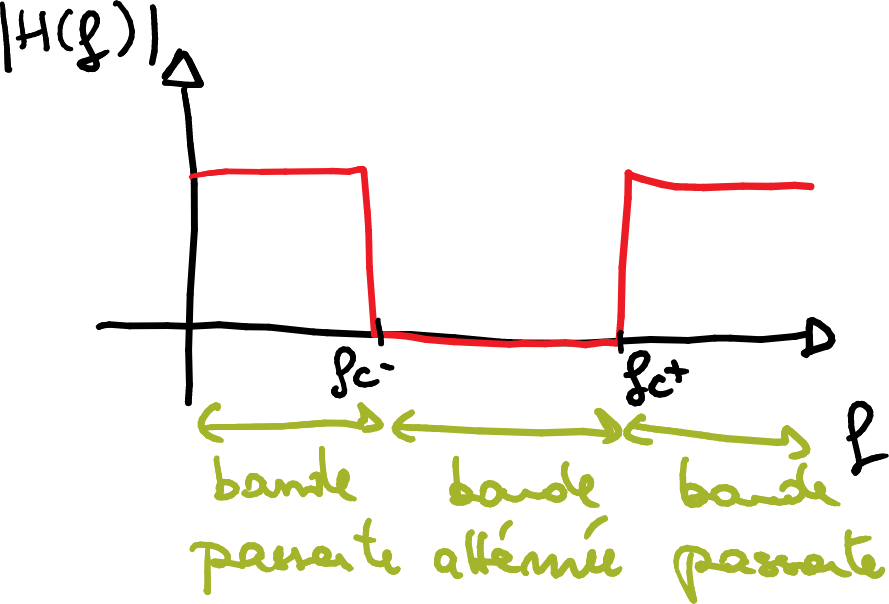 |H(f)|
fc-
fc+
f
bande
passante
bande
atténuée
bande
passante